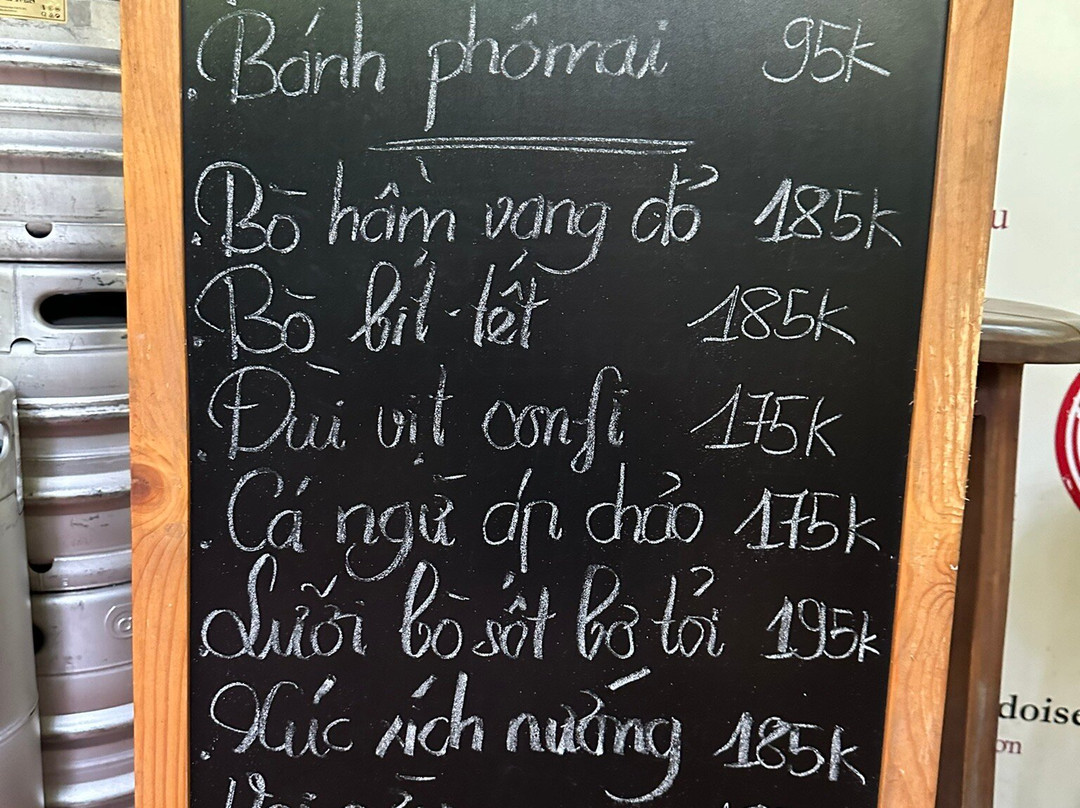 Bánh phômai 95k
Bò hầm vang đỏ 185k
Bò bít-tết 185k
Đùi vịt confi 175k
Cá ngừ áp chảo 175k
Lưỡi bò sốt bơ tỏi 195k
Xúc xích nướng 185k
u
doise
on